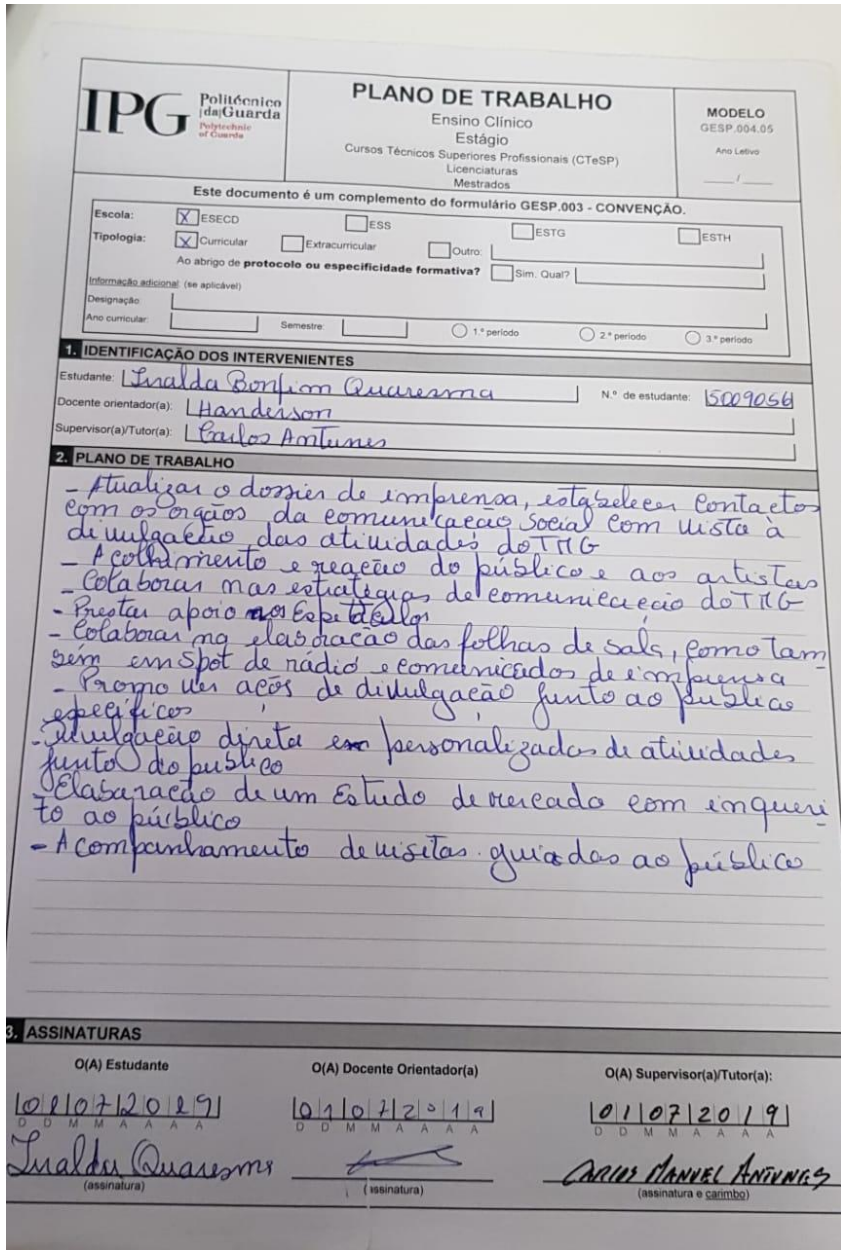 IPG Politécnico
|da|Guarda
Polytechnic
of Guarda
PLANO DE TRABALHO
Ensino Clínico
Estágio
Cursos Técnicos Superiores Profissionais (CTeSP)
Licenciaturas
Mestrados
MODELO
GESP.004.05
Ano Letivo
___/___
Este documento é um complemento do formulário GESP.003 - CONVENÇÃO.
Escola: X ESECD ESS ESTG ESTH
Tipologia: X Curricular Extracurricular Outro:
Ao abrigo de protocolo ou especificidade formativa? Sim. Qual?
Informação adicional: (se aplicável)
Designação:
Ano curricular: Semestre: 1.º período 2.º período 3.º período
1. IDENTIFICAÇÃO DOS INTERVENIENTES
Estudante: Inalda Bonfim Quaresma N.º de estudante: 5009056
Docente orientador(a): Handerson
Supervisor(a)/Tutor(a): Carlos Antunes
2. PLANO DE TRABALHO
- Atualizar o dossier de imprensa, estabelecer Contactos
com os órgãos da comunicação Social com vista à
divulgação das atividades do TMG
- Acolhimento e reação do público e aos artistas
- Colaborar nas estratégias de comunicação do TMG
- Prestar apoio aos
- Colaborar na elaboração das folhas de sala, como tam
bém em Spot de rádio e comunicados de imprensa
- Promover ações de divulgação junto ao público
específicos
- Divulgação direta em personalizados de atividades
junto do público
- Elabaração de um Estudo de mercado com inqueri
to ao público
- Acompanhamento de visitas guiadas ao público
3. ASSINATURAS
O(A) Estudante O(A) Docente Orientador(a) O(A) Supervisor(a)/Tutor(a):
01072019 01072019 01072019
D D M M A A A A D D M M A A A A D D M M A A A A
Inalda Quaresma CARLOS MANUEL ANTUNES
(assinatura) (assinatura) (assinatura e carimbo)